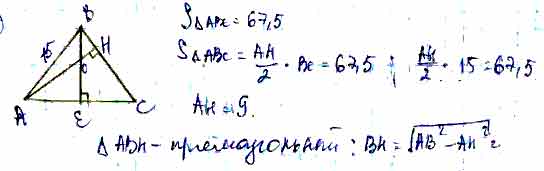 B
15
H
6
A
E
C
S△ABC = 67,5
S△ABC = AH/2 · BC = 67,5 ; AH/2 · 15 = 67,5
AH = 9.
△ ABH - прямоугольный : BH = √AB² - AH² =